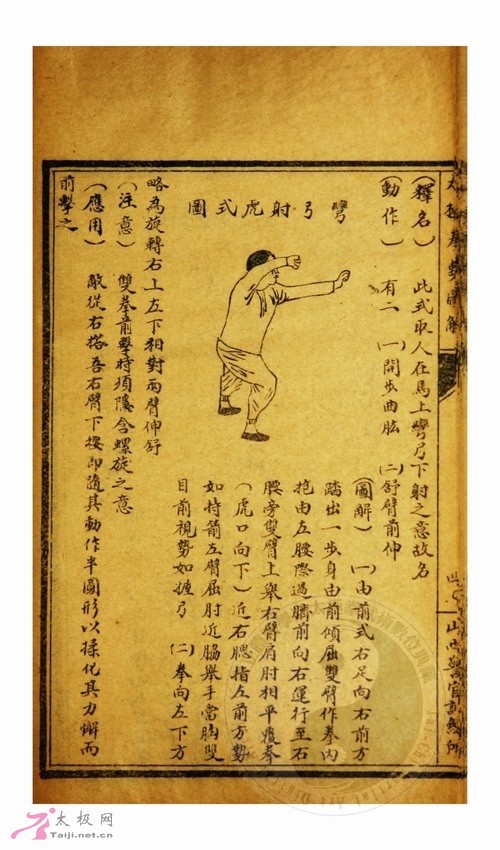 太極拳勢圖解
山西警官訓練所
(釋名) 此式取人在馬上彎弓下射之意故名
(動作) 有二 (一)開步曲肱 (二)舒臂前伸
彎弓射虎式圖
(圖解) (一)由前式右足向右前方
踏出一步身由前傾屈雙臂作拳內
抱由左腰際過臍前向右運行至右
腰旁雙臂上舉右臂肩肘相平覆拳
(虎口向下)近右腮指左前方勢
如持箭左臂屈肘近脇舉手當胸雙
目前視勢如挽弓 (二)拳向左下方
略為旋轉右上左下相對兩臂伸舒
(注意) 雙拳前擊時須隱含螺旋之意
(應用) 敵從右搭吾右臂下按即隨其動作半圓形以揉化其力懈而
前擊之
太极网
Taiji.net.cn